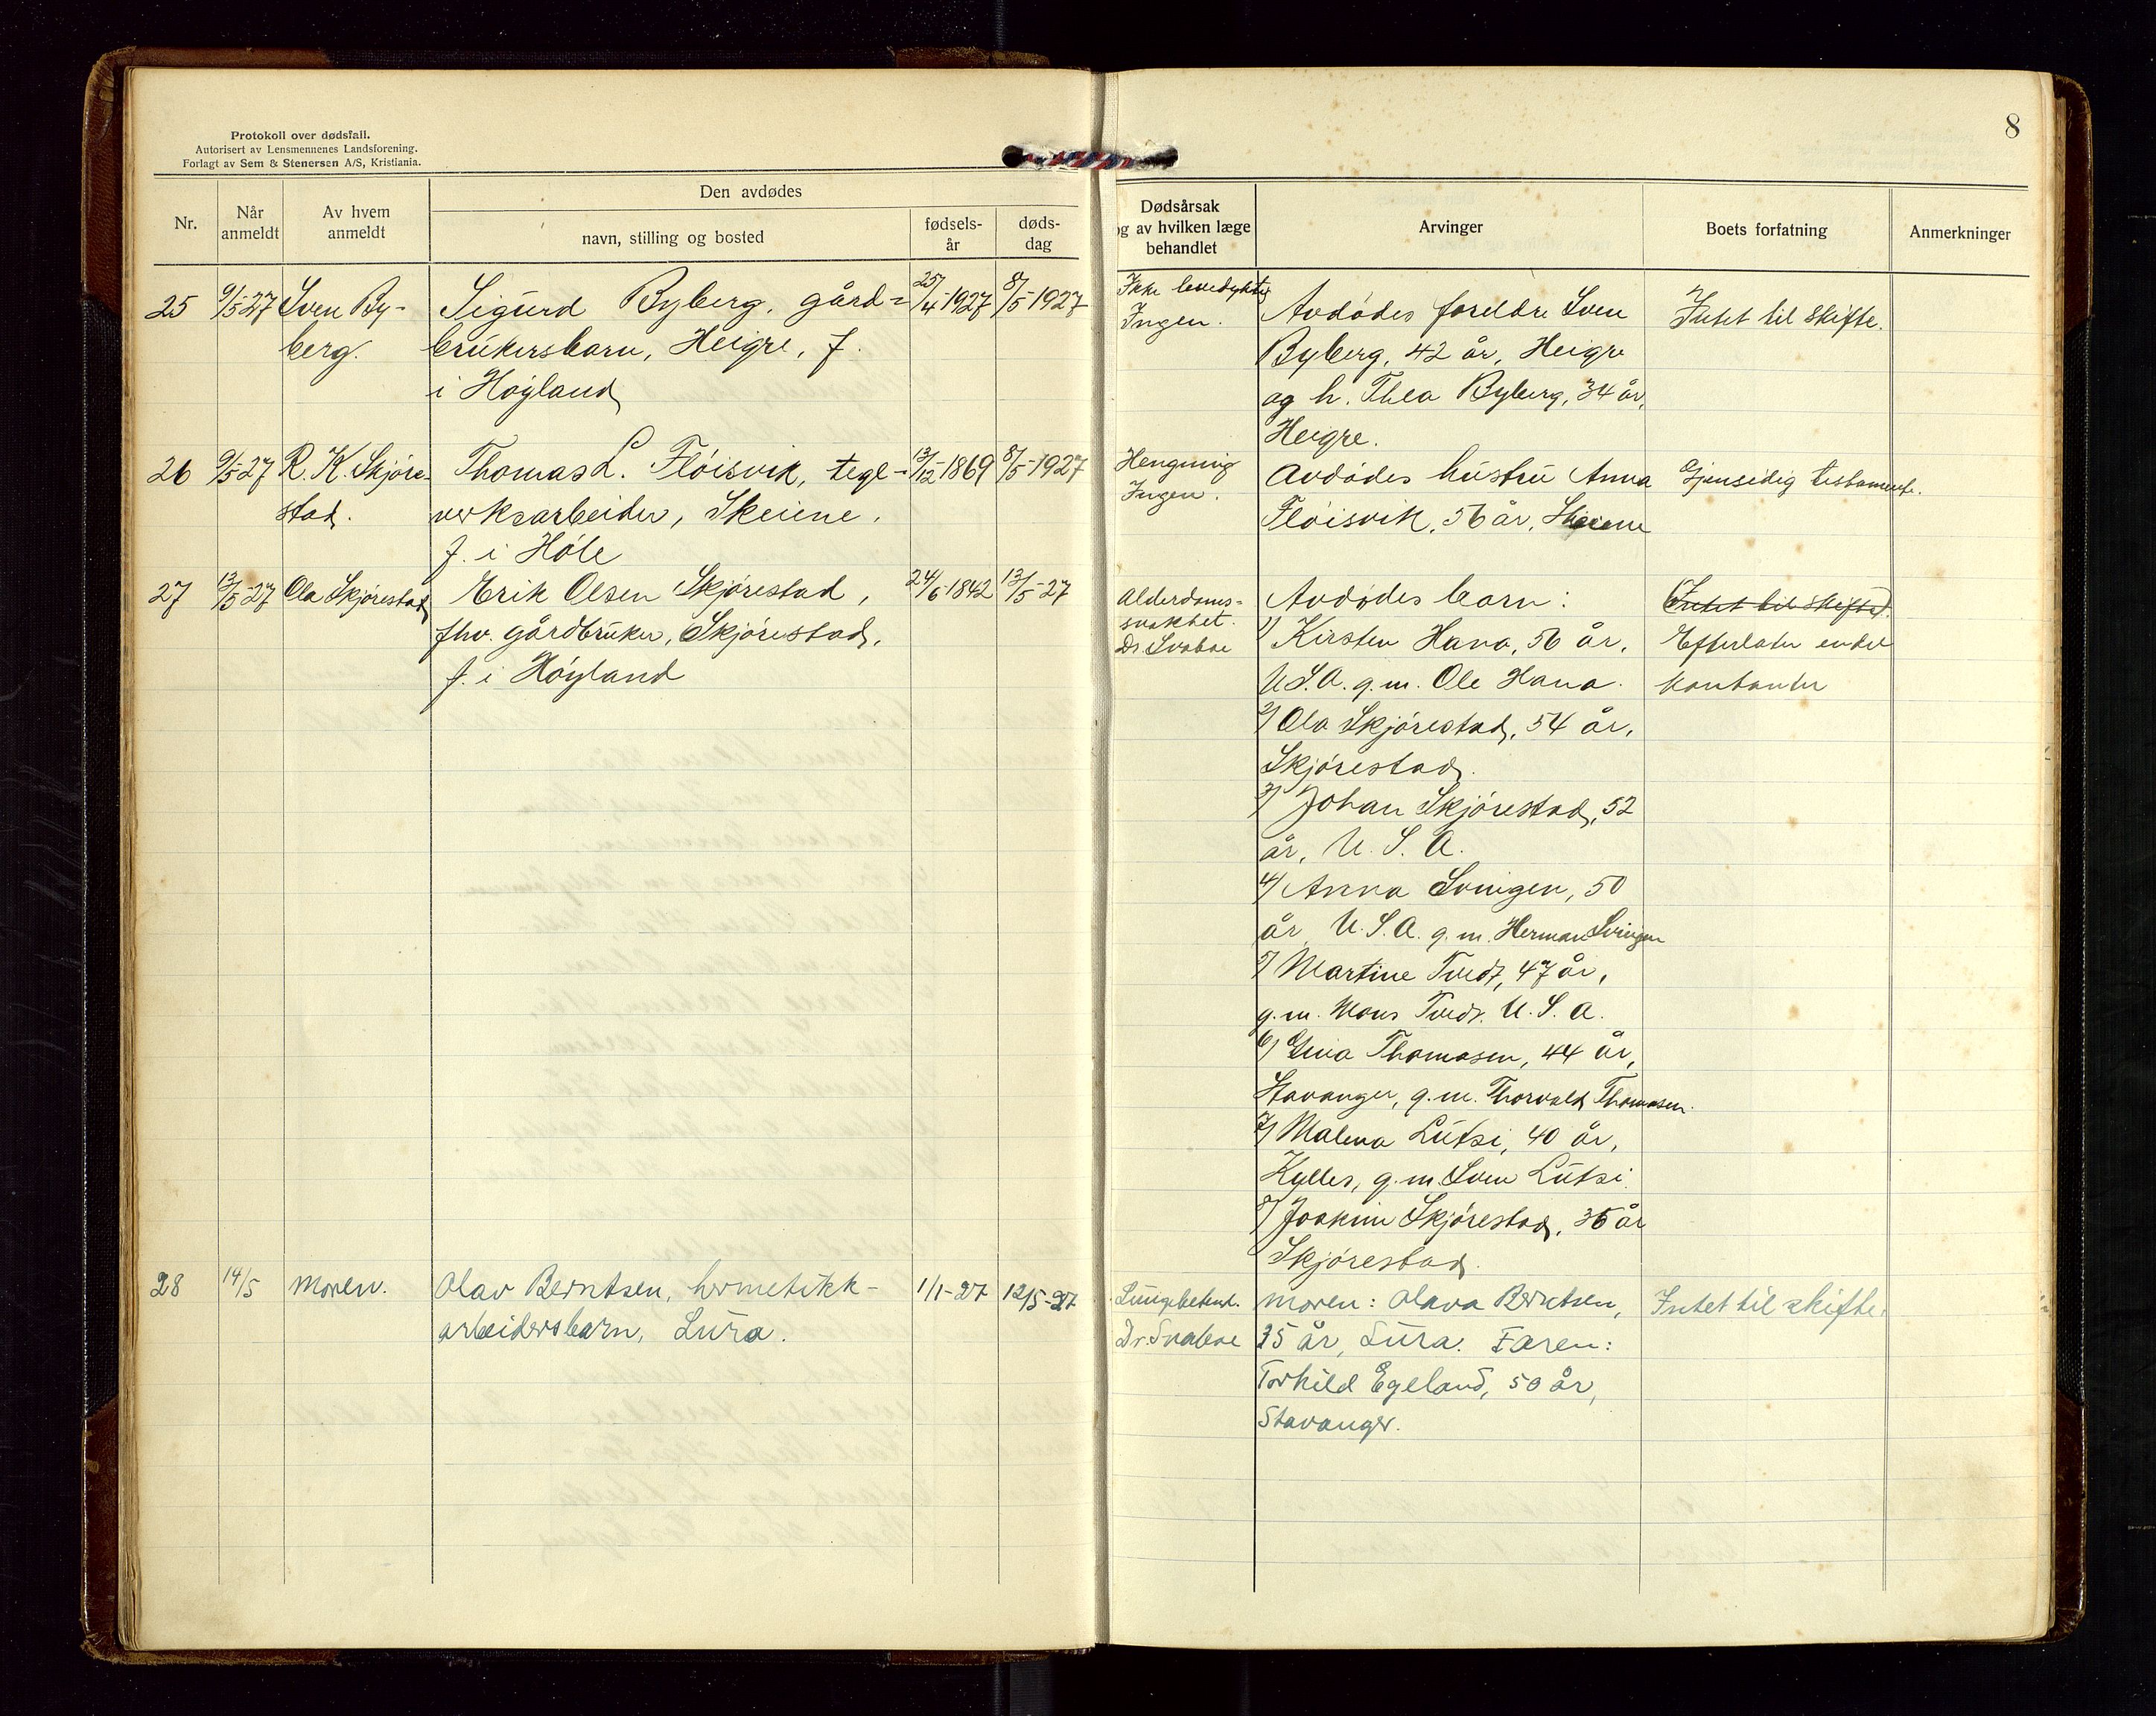 8
Protokoll over dødsfall.
Autorisert av Lensmennenes Landsforening.
Forlagt av Sem & Stenersen A/S, Kristiania.
Nr.
Når anmeldt
Av hvem anmeldt
Den avdødes
navn, stilling og bosted
fødsels-
år
døds-
dag
Dødsårsak
og av hvilken læge
behandlet
Arvinger
Boets forfatning
Anmerkninger
25
9/5-27
Sven By-
berg.
Sigurd Byberg, gård=
brukersbarn, Heigre, f.
i Høyland
25/4-1927
8/5-1927
Ikke levedyktig
Ingen.
Avdødes foreldre Sven
Byberg, 42 år, Heigre
og h. Thea Byberg, 34 år,
Heigre.
Intet til skifte.
26
9/5-27
R. K. Skjøre-
stad.
Thomas L. Fløisvik, tegl-
verksarbeider, Skeiene,
f. i Høle
13/12 1869
8/5-1927
Hengning
Ingen.
Avdødes hustru Anna
Fløisvik, 56 år, Skeiene
Gjensidig testamente.
27
13/5-27
Ola Skjørestad
Erik Olsen Skjørestad,
fhv. gårdbruker, Skjørestad,
f. i Høyland
24/6-1842
13/5-27
Alderdoms=
svakhet.
Dr Svaboe
Avdødes barn:
1/ Kirsten Hana, 56 år,
U.S.A. g.m. Ole Hana.
2/ Ola Skjørestad, 54 år,
Skjørestad.
3/ Johan Skjørestad, 52
år, U. S. A.
4/ Anna Svingen, 50
år U.S.A. g.m. Herman Svingen
5/ Martine Tvedt, 47 år,
g.m. Mons Tvedt. U. S. A.
6/ Gina Thomasen, 44 år,
Stavanger, g.m. Thorvald Thomasen.
7/ Malena Lutsi, 40 år,
Kylles, g.m. Sven Lutsi.
8/ Joakim Skjørestad, 36 år
Skjørestad.
(Intet til skifte).
Efterlater endel
kontanter
28
14/5
Moren.
Olav Berntsen, hermetikk-
arbeidersbarn, Lura.
1/1-27
12/5-27
Lungebetend.
Dr. Svaboe
Moren: Olava Berntsen,
35 år, Lura. Faren:
Torkild Egeland, 50 år,
Stavanger.
Intet til skifte.